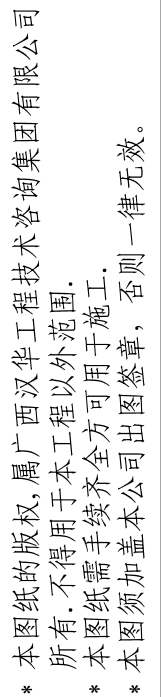 * 本图纸的版权,属广西汉华工程技术咨询集团有限公司
所有.不得用于本工程以外范围.
* 本图纸需手续齐全方可用于施工.
* 本图须加盖本公司出图签章，否则一律无效。